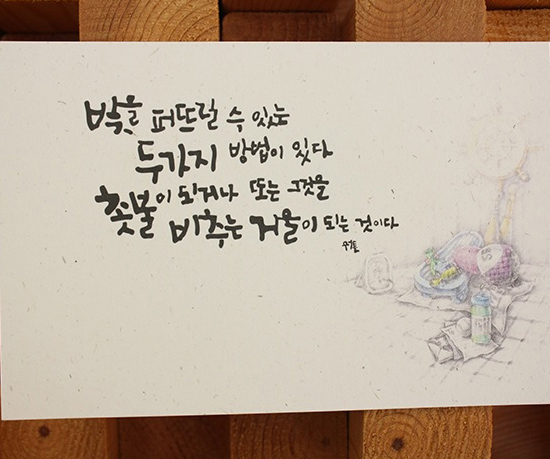 빛을 퍼뜨릴 수 있는
두가지 방법이 있다
촛불이 되거나 또는 그것을
비추는 거울이 되는 것이다